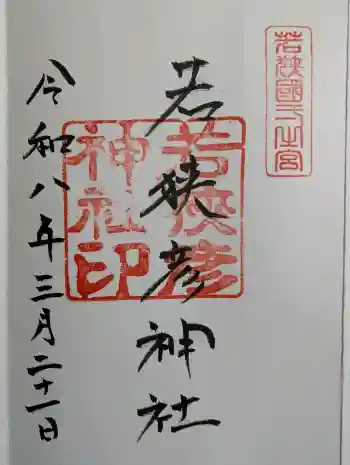 若狭國一之宮
若狭彦神社
若狭彦
神社印
令和八年三月二十一日